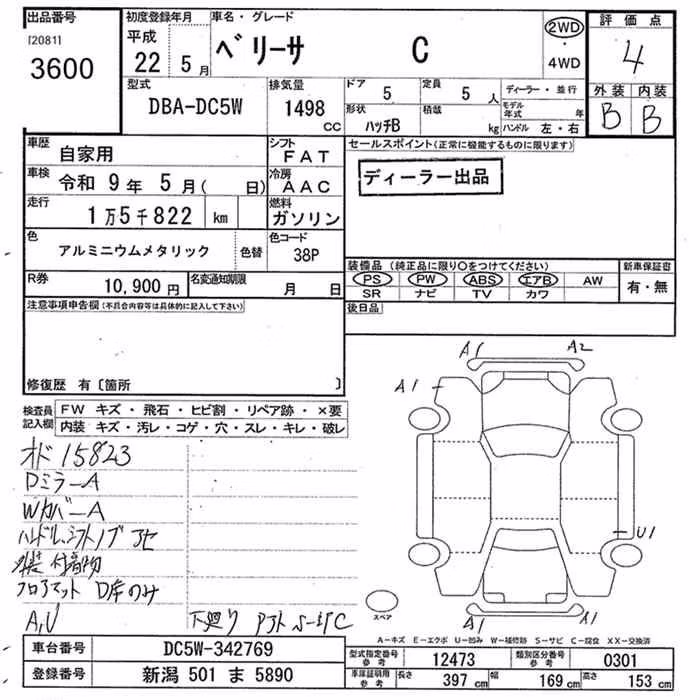 出品番号
[2081]
3600
初度登録年月
平成
22 5月
車名・グレード
ベリーサ C
2WD
・
4WD
評価点
4
外装 内装
B B
型式
DBA-DC5W
排気量
1498
CC
ドア 5
定員 5 人
ディーラー・並行
形状
ハッチB
積載
kg
モデル年式 年
ハンドル 左・右
車歴
自家用
シフト
FAT
車検
令和 9年 5月( 日)
冷房
AAC
走行
1万5千822 km
燃料
ガソリン
色
アルミニウムメタリック
色替
色コード
38P
R券
10,900円
名変通知期限
月 日
セールスポイント(正常に機能するものに限ります)
ディーラー出品
装備品 (純正品に限り○をつけてください)
PS PW ABS エアB AW
SR ナビ TV カワ
新車保証書
有・無
後日品
注意事項申告欄(不具合内容等は具体的に記入して下さい)
修復歴 有〔箇所 〕
検査員
記入欄
FW キズ・飛石・ヒビ割・リペア跡・×要
内装 キズ・汚レ・コゲ・穴・スレ・キレ・破レ
オド 15823
Dミラー A
Wカバー A
ハンドル、シフトノブ アセ
付着物
フロアマット D席のみ
A,U
下廻り
A1 A2
A1
U1
A1 A1
スペア
A-キズ E-エクボ U-凹み W-補修跡 S-サビ C-腐食 XX-交換済
車台番号
DC5W-342769
登録番号
新潟 501 ま 5890
型式指定番号
参考
12473
類別区分番号
参考
0301
車庫証明用
参考
長さ 397 cm
幅 169 cm
高さ 153 cm